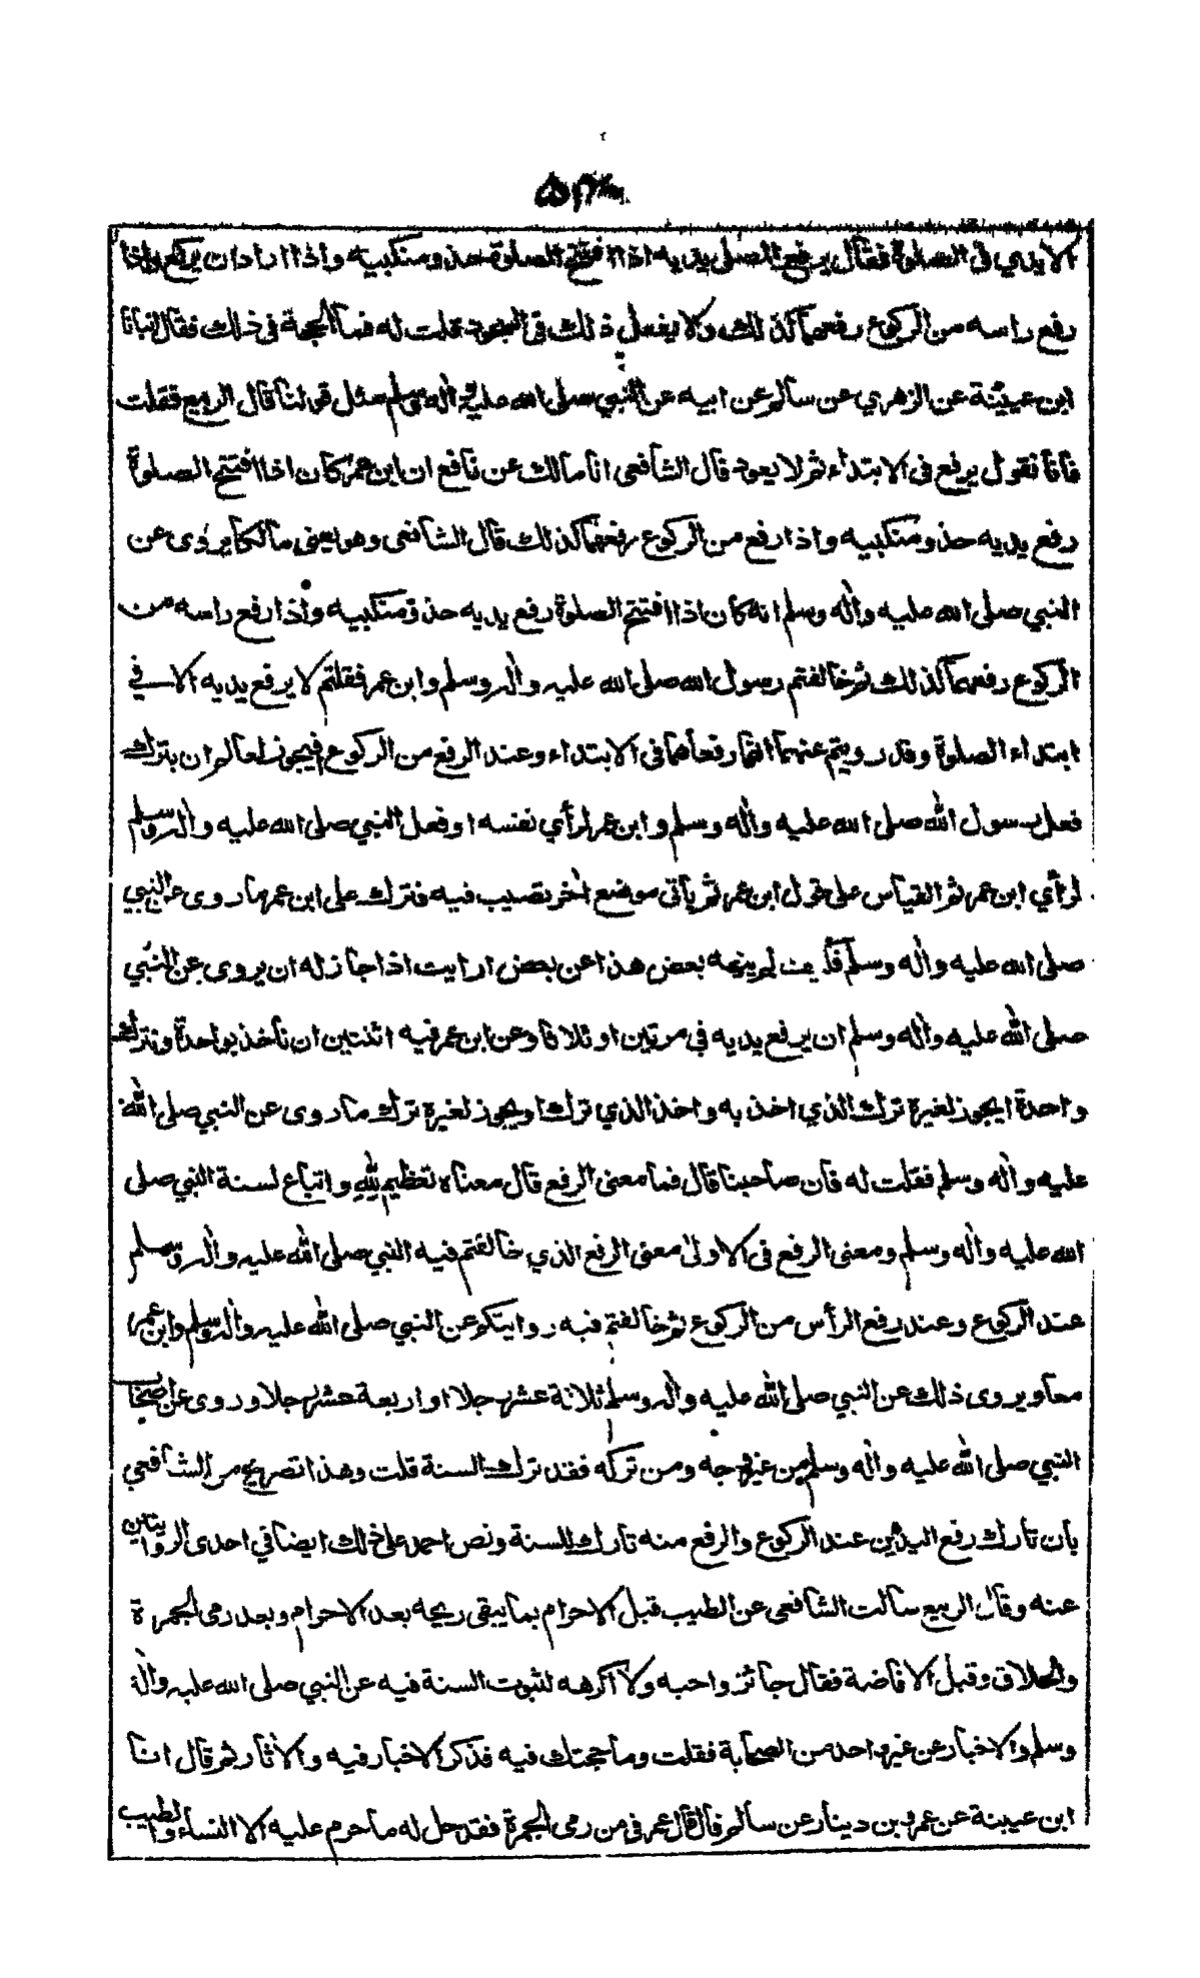 الايدي في الصلوة فقال يرفع المصلى يديه اذا افتتح الصلوة حذو منكبيه واذا اراد ان يركع واذا
رفع راسه من الركوع رفعهما كذلك ولا يفعل ذلك في السجود قلت له فما الحجة في ذلك فقال انبانا
ابن عيينة عن الزهري عن سالم عن ابيه عن النبي صلى الله عليه واله وسلم مثل قولنا قال الربيع فقلت
فانا نقول يرفع في الابتداء ثم لا يعود قال الشافعي انا مالك عن نافع ان ابن عمر كان اذا افتتح الصلوة
رفع يديه حذو منكبيه واذا رفع من الركوع رفعهما كذلك قال الشافعي وهو يعنى مالكا يروى عن
النبي صلى الله عليه واله وسلم انه كان اذا افتتح الصلوة رفع يديه حذو منكبيه واذا رفع راسه من
الركوع رفعهما كذلك ثم خالفتم رسول الله صلى الله عليه واله وسلم وابن عمر فقلتم لا يرفع يديه الا في
ابتداء الصلوة وقد رويتم عنهما انهما رفعاهما في الابتداء وعند الرفع من الركوع افيجوز لعالم ان يترك
فعل رسول الله صلى الله عليه واله وسلم وابن عمر لرأي نفسه او فعل النبي صلى الله عليه واله وسلم
لرأي ابن عمر ثم القياس على قول ابن عمر ثم يأتى موضع اخر تصيب فيه فترك على ابن عمر ما روى عن النبي
صلى الله عليه واله وسلم فكيف لم ينهه بعض هذا عن بعض ارايت اذا جاز له ان يروى عن النبي
صلى الله عليه واله وسلم ان يرفع يديه في مرتين او ثلاثا وعن ابن عمر فيه اثنتين ان نأخذ بواحدة ونترك
واحدة ايجوز لغيره ترك الذي اخذ به واخذ الذي ترك او يجوز لغيره ترك ما روى عن النبي صلى الله
عليه واله وسلم فقلت له فان صاحبنا قال فما معنى الرفع قال معناه تعظيم لله واتباع لسنة النبي صلى
الله عليه واله وسلم ومعنى الرفع في الاولى معنى الرفع الذي خالفتم فيه النبي صلى الله عليه واله وسلم
عند الركوع وعند رفع الرأس من الركوع ثم خالفتم فيه روايتكم عن النبي صلى الله عليه واله وسلم وابن عمر
معا ويروى ذلك عن النبي صلى الله عليه واله وسلم ثلاثة عشر رجلا او اربعة عشر رجلا وروى عن اصحاب
النبي صلى الله عليه واله وسلم من غير وجه ومن تركه فقد ترك السنة قلت وهذا تصريح من الشافعي
بان تارك رفع اليدين عند الركوع والرفع منه تارك للسنة ونص احمد على ذلك ايضا في احدى الروايتين
عنه وقال الربيع سالت الشافعي عن الطيب قبل الاحرام بما يبقى ريحه بعد الاحرام وبعد رمى الجمرة
والحلاق وقبل الافاضة فقال جائز واحبه ولا اكرهه لثبوت السنة فيه عن النبي صلى الله عليه واله
وسلم والاخبار عن غير واحد من الصحابة فقلت وما حجتك فيه فذكر الاخبار فيه والاثار ثم قال انا
ابن عيينة عن عمرو بن دينار عن سالم قال قال عمر في من رمى الجمرة فقد حل له ما حرم عليه الا النساء والطيب